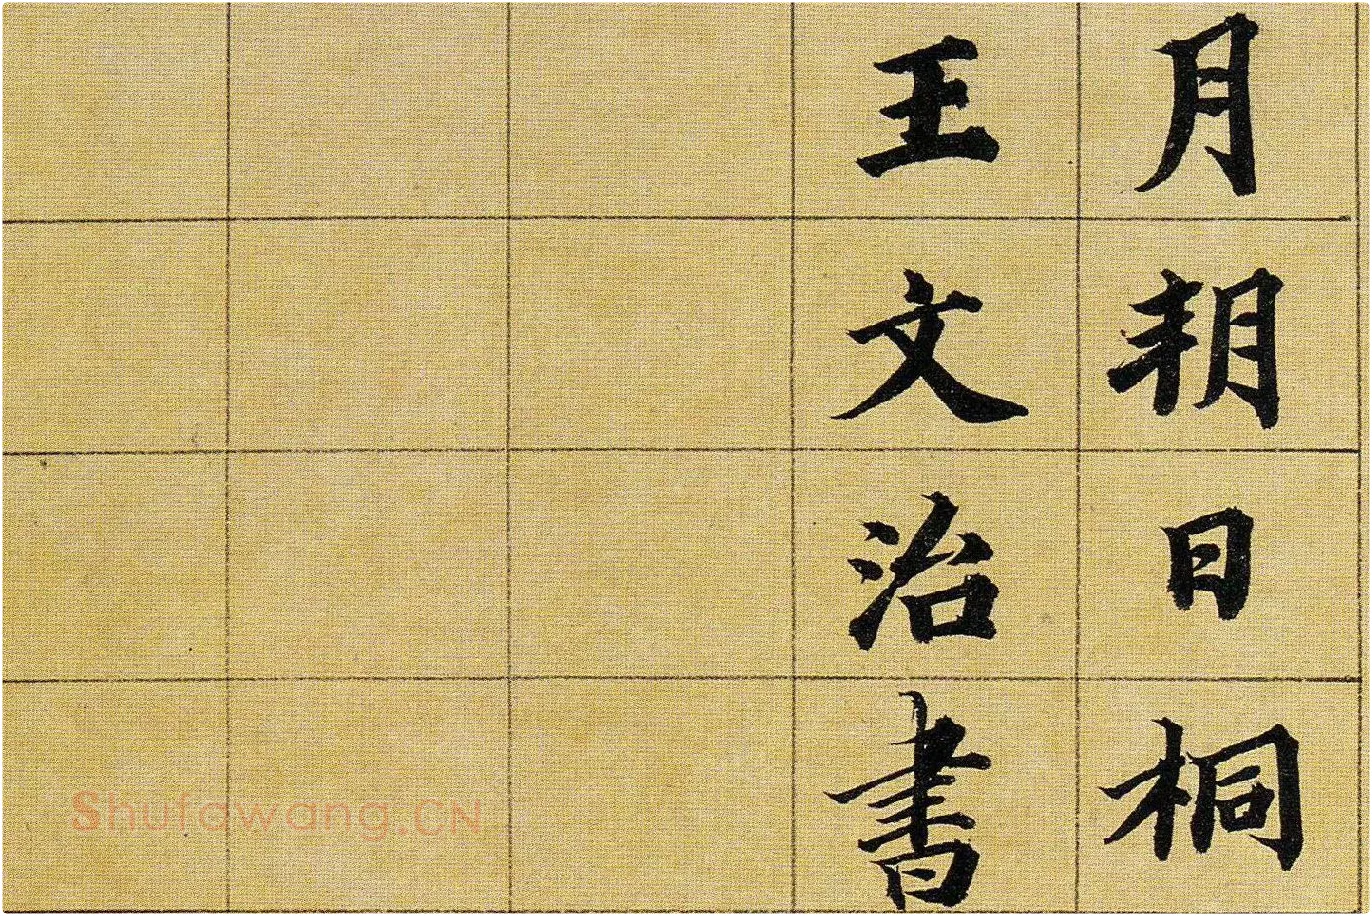 月朔日桐
王文治書
Shufawang.CN